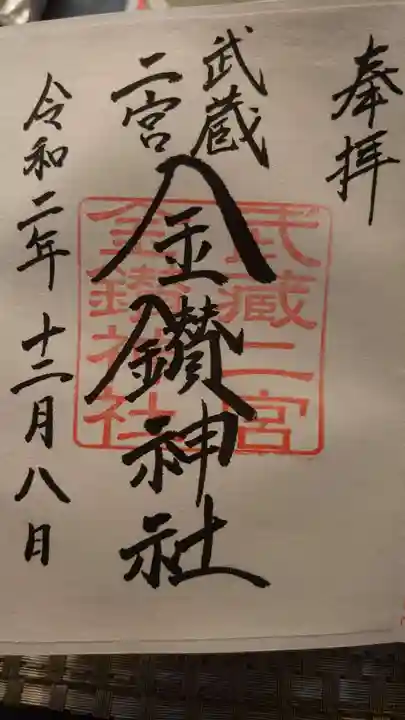 奉拝
武蔵
二宮
金鑚神社
武蔵二宮
金鑚神社
令和二年十二月八日